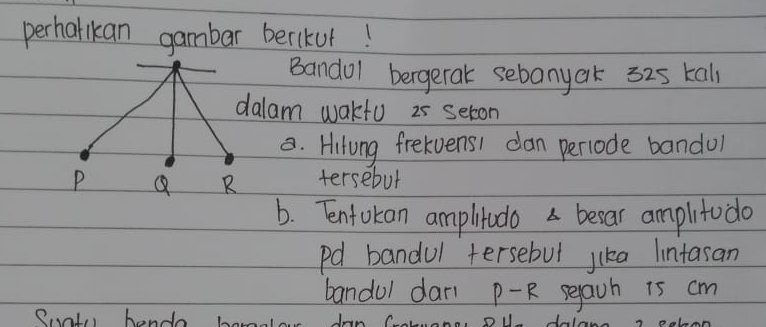 perhatikan gambar berikut !
Bandul bergerak sebanyak 325 kali
dalam waktu 25 sekon
a. Hitung frekuensi dan periode bandul
tersebut
P Q R
b. Tentukan amplitudo & besar amplitudo
pd bandul tersebut jika lintasan
bandul dari P-R sejauh 15 cm
Suatu benda bergetar dan frekuensi 8 Hz dalam 2 sekon